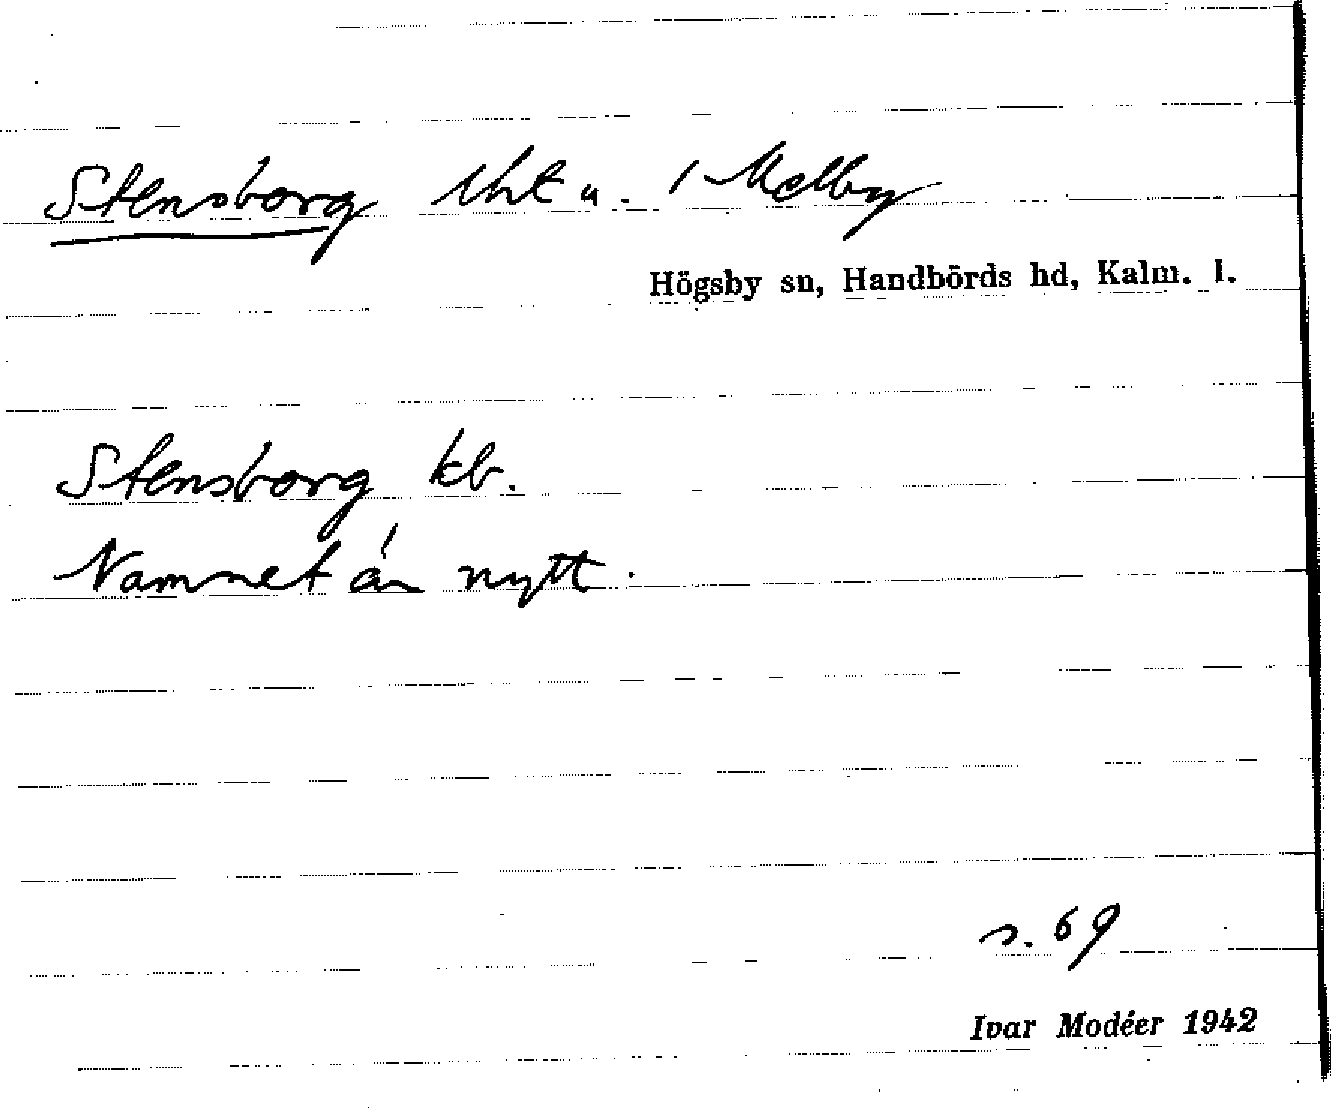 Stensborg lht u. 1 Mellby
Högsby sn, Handbörds hd, Kalm. l.
Stensborg kb.
Namnet är nytt.
s. 69
Ivar Modéer 1942